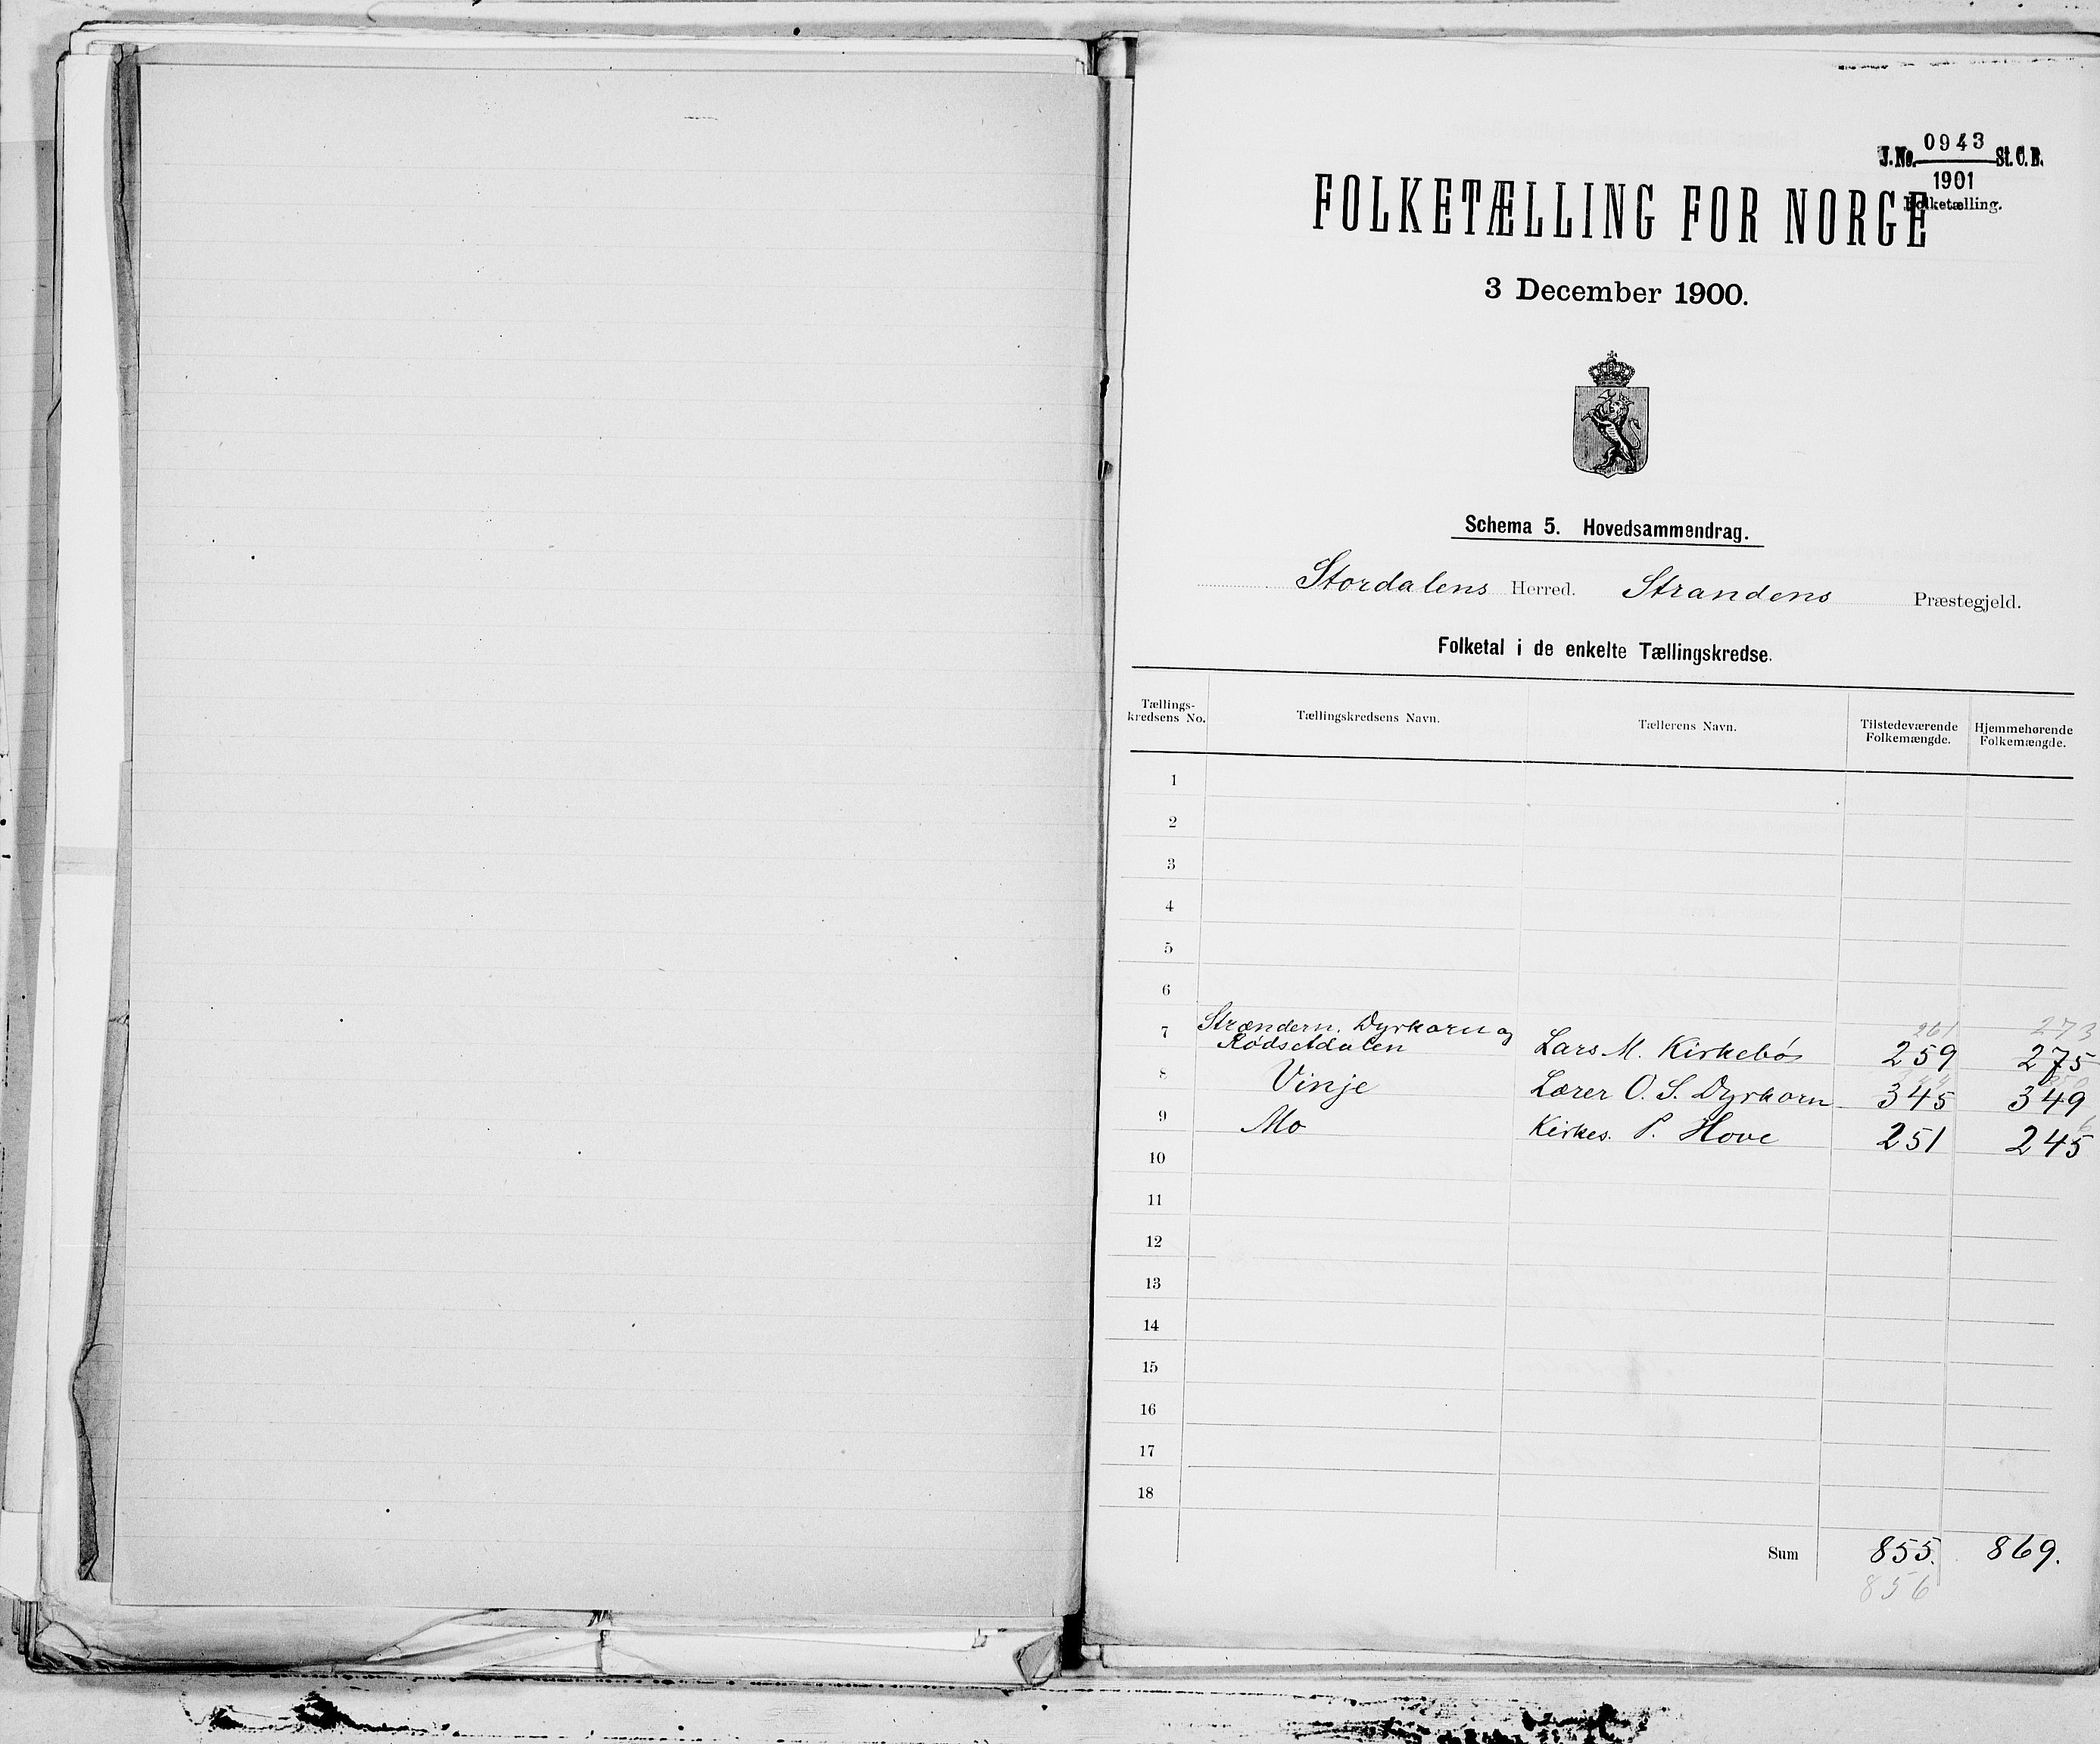 J. No. 0943 St. C. B.
1901
Folketælling.
FOLKETÆLLING FOR NORGE
3 December 1900.
Schema 5. Hovedsammendrag.
Stordalens Herred. Strandens Præstegjeld.
Folketal i de enkelte Tællingskredse.
Tællings-kredsens No. Tællingskredsens Navn. Tællerens Navn. Tilstedeværende Folkemængde. Hjemmehørende Folkemængde.
1
2
3
4
5
6
261 273
7 Strændern. Dyrkorn og
Rødsetdalen Lars M. Kirkebø 259 275
8 Vinje Lærer O. S. Dyrkorn 345 349
9 Mo Kirkes. P. Hove 251 245
6
10
11
12
13
14
15
16
17
18
Sum 855. 869.
856